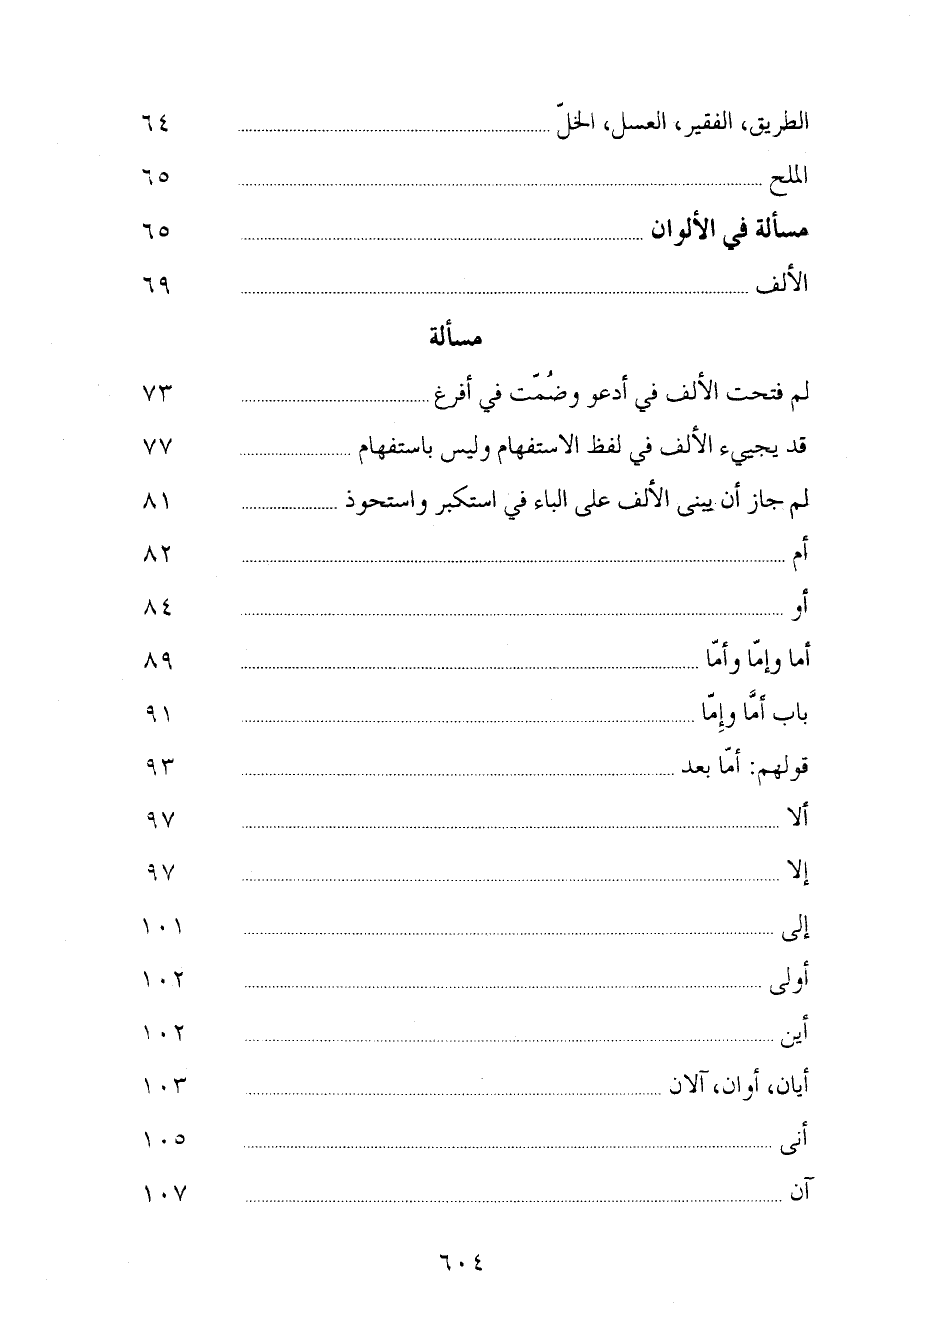 الطريق، الفقير، العسل، الخلّ ........ ٦٤
الملح ........ ٦٥
مسألة في الألوان ........ ٦٥
الألف ........ ٦٩
مسألة
لم فتحت الألف في أدعو وضُمّت في أفرغ ........ ٧٣
قد يجييء الألف في لفظ الاستفهام وليس باستفهام ........ ٧٧
لم جاز أن يبنى الألف على الباء في استكبر واستحوذ ........ ٨١
أم ........ ٨٢
أو ........ ٨٤
أما وإمّا وأمّا ........ ٨٩
باب أمَّا وإِمّا ........ ٩١
قولهم: أمّا بعد ........ ٩٣
ألا ........ ٩٧
إلا ........ ٩٧
إلى ........ ١٠١
أولى ........ ١٠٢
أين ........ ١٠٢
أيان، أوان، آلان ........ ١٠٣
أنى ........ ١٠٥
آن ........ ١٠٧
٦٠٤